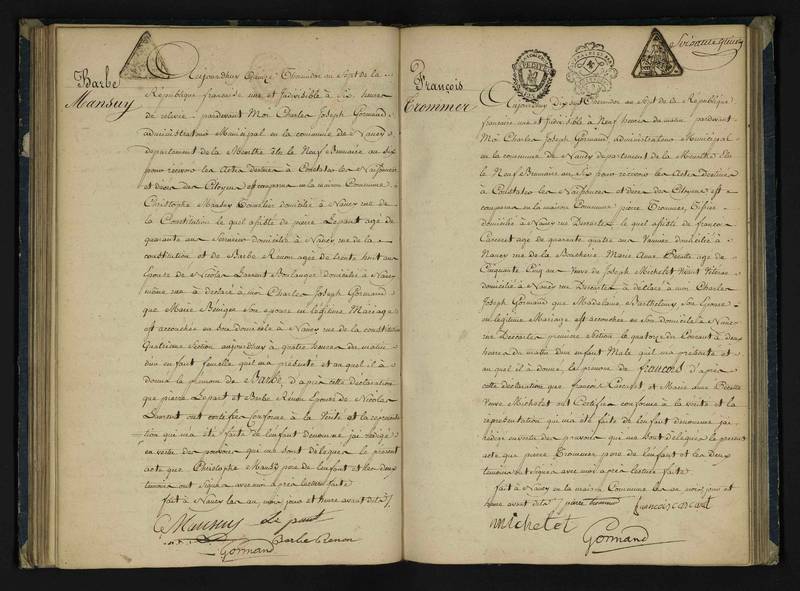 Barbe
Mansuy
Aujourdhuy Thermidor an Sept de la
République française une et Indivisible à Six heures
de relevée pardevant Moi Charles Joseph Gormand
administrateur Municipal en la commune de Nancy
departement de la Meurthe élu le Neuf Brumaire an six
pour recevoir les Actes destinés à Constater les Naissances
et décès des Citoyens est comparu en la maison Commune
Christophe Mansuy domicilié à Nancy rue de
la Constitution le quel assisté de pierre Lepant agé de
quarante ans domicilié à Nancy rue de la
constitution et de Barbe Renon agée de trente huit ans
Epouse de Nicolas Laurent Boulanger domicilié à Nancy
même rue à déclaré à moi Charles Joseph Gormand
que Marie son epouse en légitime Mariage
est accouchée en son domicile à Nancy rue de la constitution
Quatrième Section aujourdhuy à quatre heures du matin
dun enfant femelle quil m'a présenté et au quel il à
donné le prénom de Barbe, d'après cette déclaration
que pierre Lepant et Barbe Renon Epouse de Nicolas
Laurent ont certifiée conforme à la Verité et la représenta
tion qui m'a été faite de l'enfant dénommé j'ai rédigé
en vertu des pouvoirs qui me sont délégués le présent
acte que Christophe Mansuy père de l'enfant et les deux
temoins ont signé avec moi après lecture faite
fait à Nancy les an mois jour et heure avant dits
C Mansuy Le pant
Gormand Barbe Renon
François
Trommer
Aujourdhuy Dix sept Thermidor an Sept de la République
française une et Indivisible à Neuf heures du matin pardevant
Moi Charles Joseph Gormand administrateur Municipal
en la commune de Nancy departement de la Meurthe Elu
le Neuf Brumaire an Six pour recevoir les Actes destinés
à Constater les Naissances et décès des Citoyens est
comparu en la maison Commune pierre Trommer,
domicilié à Nancy rue Descartes le quel assisté de françois
Carcart agé de quarante quatre ans Vannier domicilié à
Nancy rue de la Boucherie Marie Anne agée de
Cinquante Cinq ans Veuve de Joseph Michelet Vivant
domicilié à Nancy rue Descartes à déclaré à moi Charles
Joseph Gormand que Madelaine Barthelemy son Epouse
en légitime Mariage est accouchée en son domicile à Nancy
rue Descartes première Section le quatorze du Courant à deux
heures du matin dun enfant Male quil m'a présenté et
au quel il à donné le prenom de françois d'après
cette déclaration que françois Carcart et Marie Anne
Veuve Michelet ont Certifiée conforme à la vérité et la
représentation qui m'a été faite de l'enfant dénommé j'ai
rédigé en vertu des pouvoirs qui me sont délégués le présent
acte que pierre Trommer père de l'enfant et les Deux
temoins ont Signé avec moi après lecture faite
fait à Nancy en la maison Commune les an mois jour et
heure avant dits pierre trommer francois carcart
Michelet
Gormand